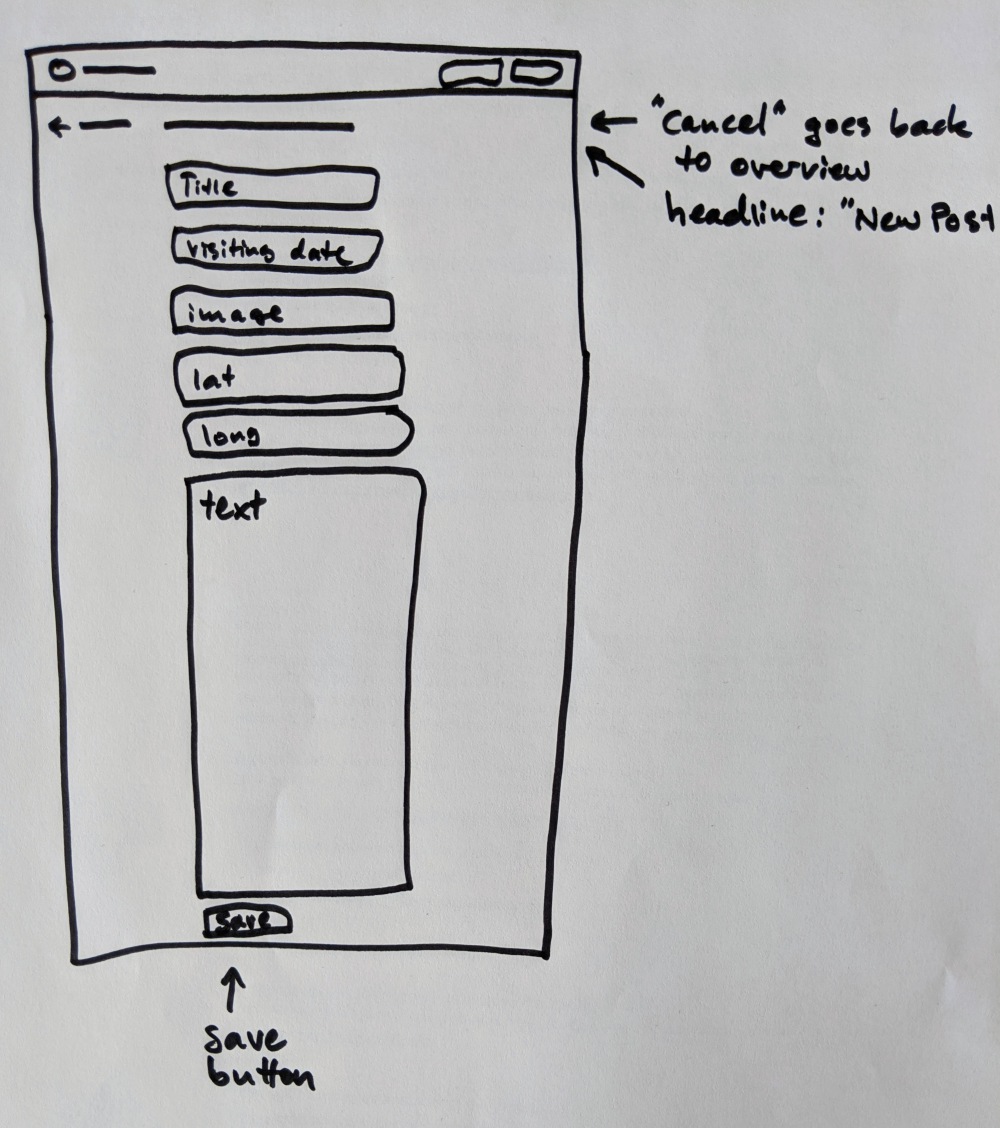 "Cancel" goes back
to overview
headline: "New Post
Title
visiting date
image
lat
long
text
save
save
button